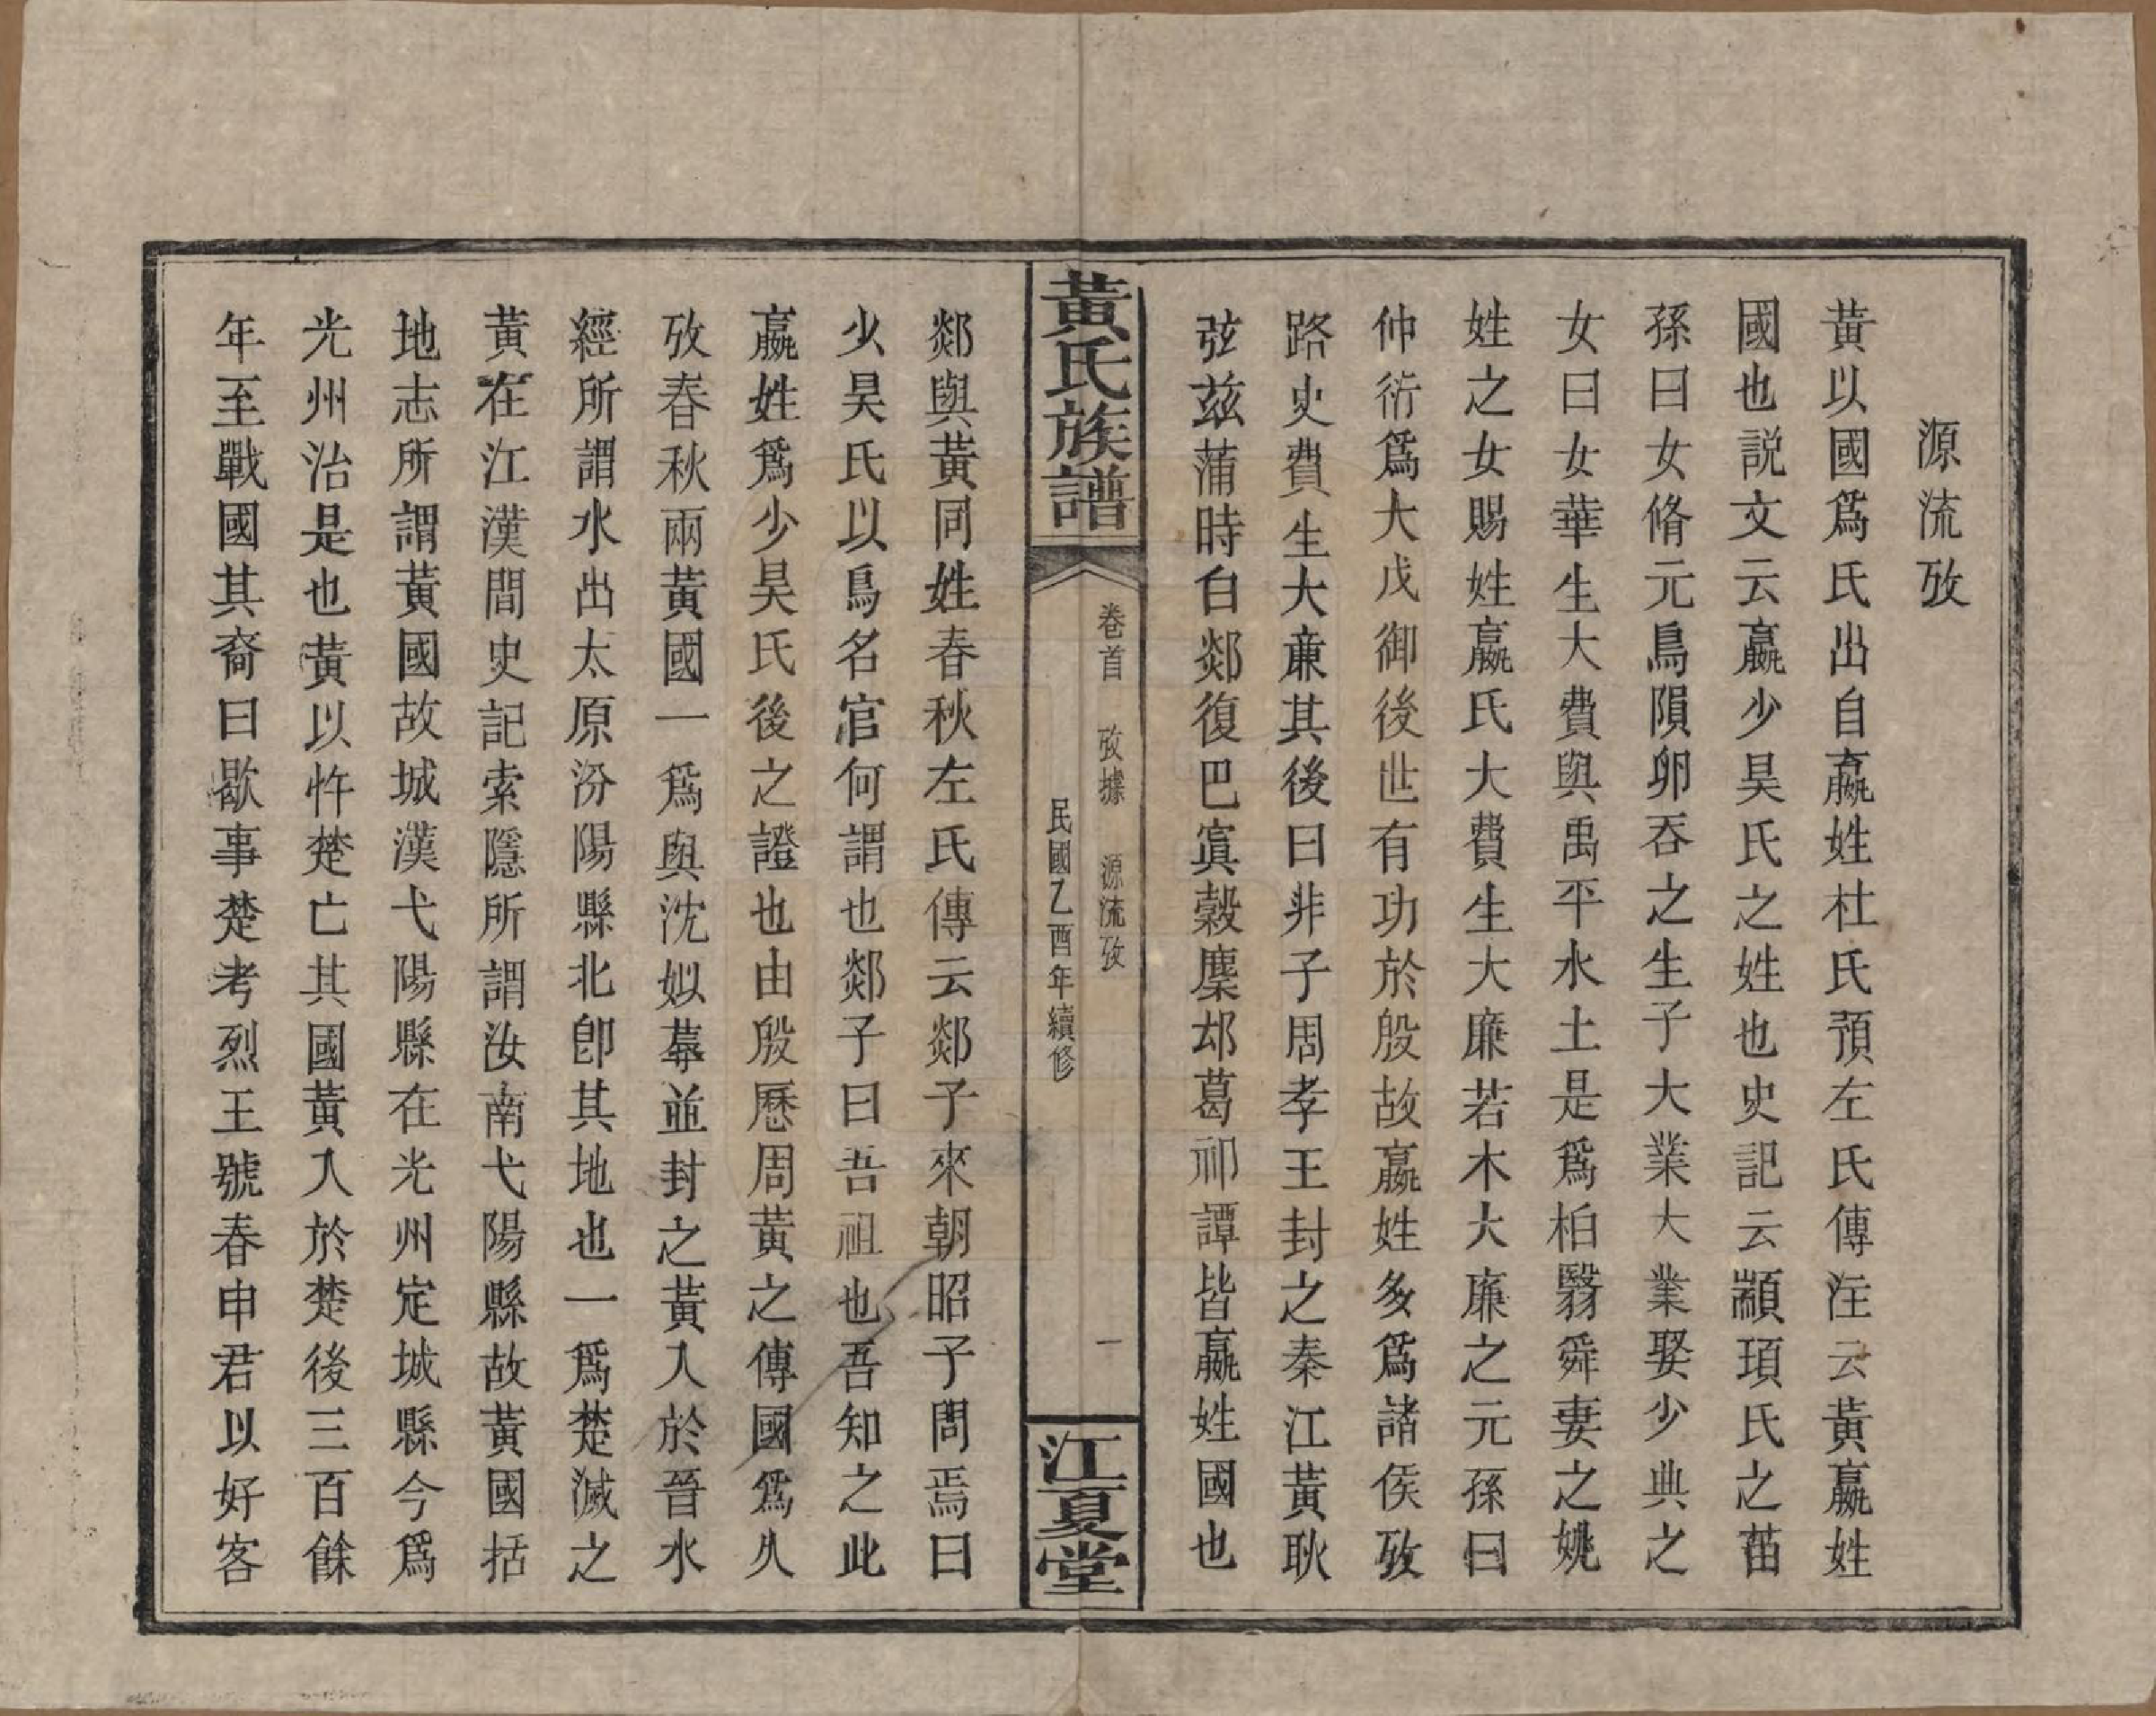 源流攷
黃以國爲氏出自嬴姓杜氏預左氏傳注云黃嬴姓
國也説文云嬴少昊氏之姓也史記云顓頊氏之苗
孫曰女脩元鳥隕卵吞之生子大業大業娶少典之
女曰女華生大費與禹平水土是爲柏翳舜妻之姚
姓之女賜姓嬴氏大費生大廉若木大廉之元孫曰
仲衍爲大戊御後世有功於殷故嬴姓多爲諸侯攷
路史費生大亷其後曰非子周孝王封之秦江黃耿
弦茲蒲時白郯復巴寘穀麇邥葛祁譚皆嬴姓國也
黃氏族譜
卷首 攷據 源流攷 一
民國乙酉年續修
江夏堂
郯與黃同姓春秋左氏傳云郯子來朝昭子問焉曰
少昊氏以鳥名官何謂也郯子曰吾祖也吾知之此
嬴姓爲少昊氏後之證也由殷歷周黃之傳國爲久
攷春秋兩黃國一爲與沈姒蓐並封之黃入於晉水
經所謂水出太原汾陽縣北卽其地也一爲楚滅之
黃在江漢間史記索隱所謂汝南弋陽縣故黃國括
地志所謂黃國故城漢弋陽縣在光州定城縣今爲
光州治是也黃以忤楚亡其國黃入於楚後三百餘
年至戰國其裔曰歇事楚考烈王號春申君以好客